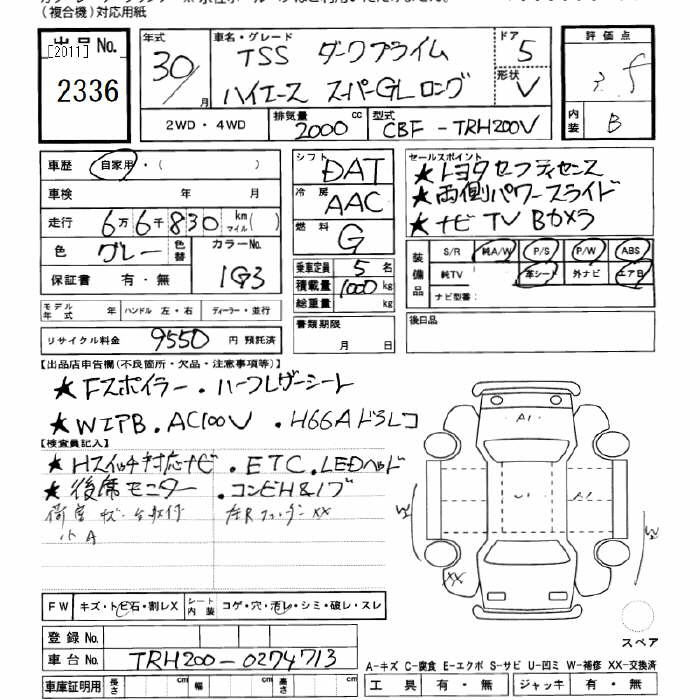 (複合機)対応用紙
出品No.
[2011]
2336
年式
30/月
車名・グレード
TSS ダークプライム
ハイエース スーパーGLロング
ドア
5
形状
V
評価点
内装
B
2WD・4WD
排気量
2000 cc
型式
CBF-TRH200V
車歴 自家用・( )
車検 年 月
走行 6万6千830 km マイル( )
色 グレー 色替 カラーNo.
1G3
保証書 有・無
シフト DAT
冷房 AAC
燃料 G
乗車定員 5 名
積載量 1000 kg
総重量 kg
セールスポイント
★トヨタセーフティセンス
★両側パワースライド
★ナビ TV Bカメラ
装備品 S/R 純A/W P/S P/W ABS
純TV 革シート 外ナビ エアB
ナビ型番:
モデル年式 年 ハンドル 左・右 ディーラー・並行
リサイクル料金 9550 円 預託済
書類期限
月 日
後日品
【出品店申告欄(不良箇所・欠品・注意事項等)】
★Fスポイラー・ハーフレザーシート
★WエアB・AC100V・H66Aドラレコ
【検査員記入】
★Hスイッチ対応ナビ・ETC・LEDヘッド
★後席モニター・コンビH&ノブ
小A
左Rフェンダー XX
A1
U1
A1
W
W
XX
スペア
FW キズ・トビ石・割レX シート内装 コゲ・穴・汚レ・シミ・破レ・スレ
登録No.
車台No. TRH200-0274713
車庫証明用 長さ cm 幅 cm 高さ cm
A-キズ C-腐食 E-エクボ S-サビ U-凹ミ W-補修 XX-交換済
工具 有・無 ジャッキ 有・無